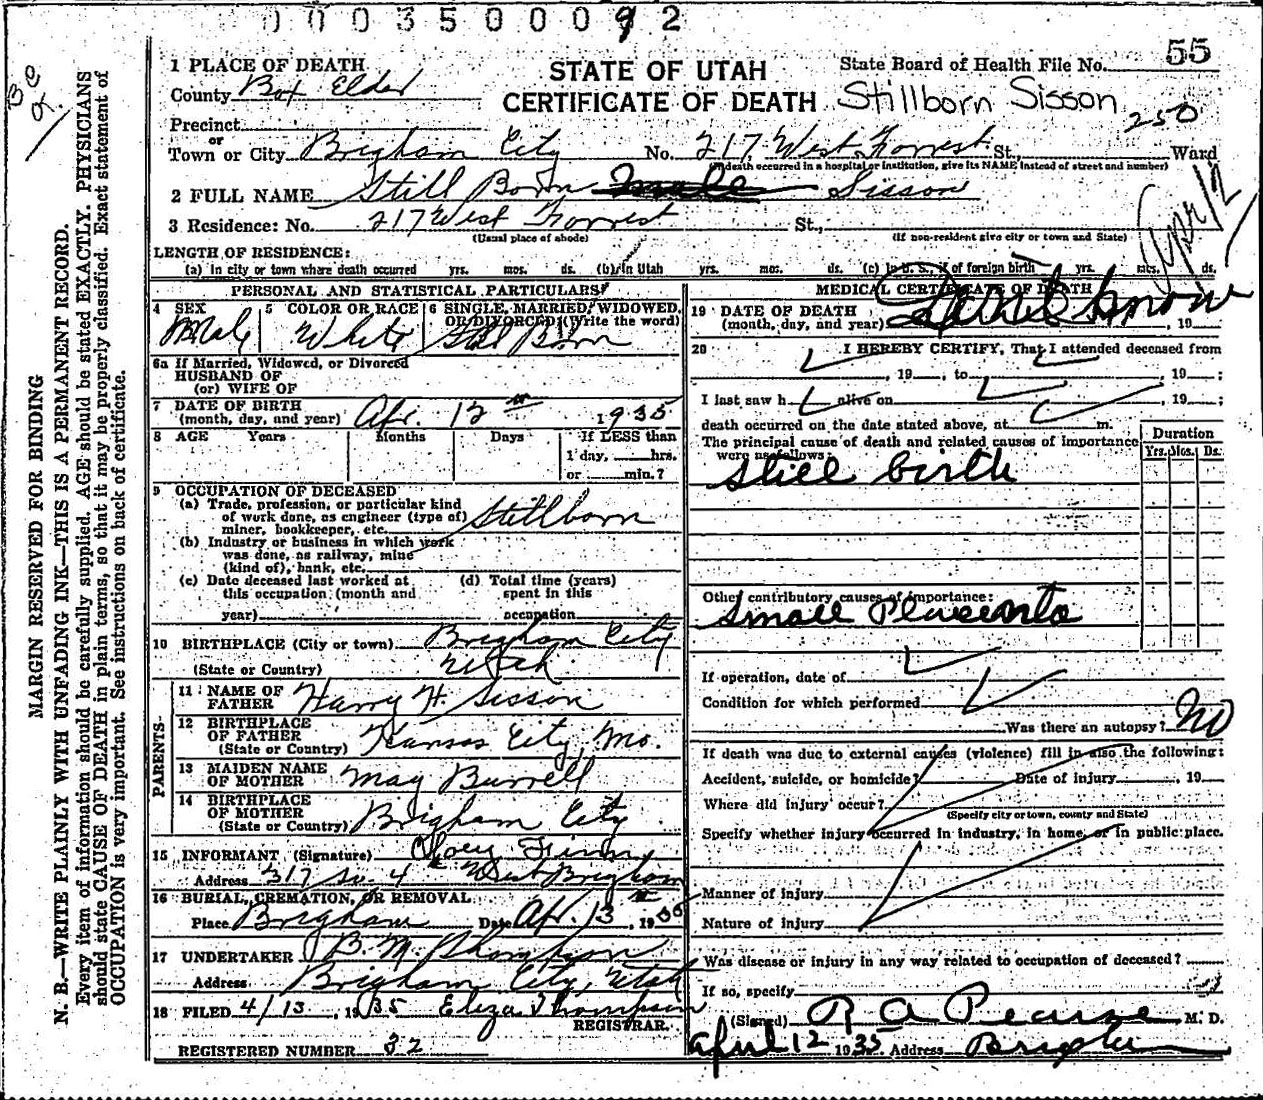 0003500092
55
1 PLACE OF DEATH
STATE OF UTAH
State Board of Health File No.
County Box Elder
CERTIFICATE OF DEATH
Stillborn Sisson
250
Precinct
or
Town or City Brigham City No. 217, West Forrest St., Ward
(If death occurred in a hospital or institution, give its NAME instead of street and number)
2 FULL NAME Still Born Male Sisson
3 Residence: No. 217 West Forrest St.,
(Usual place of abode) (If non-resident give city or town and State)
LENGTH OF RESIDENCE:
(a) In city or town where death occurred yrs. mos. ds. (b) In Utah yrs. mos. ds. (c) In U. S., if of foreign birth yrs. mos. ds.
PERSONAL AND STATISTICAL PARTICULARS
4 SEX 5 COLOR OR RACE 6 SINGLE, MARRIED, WIDOWED,
OR DIVORCED (Write the word)
Male White Still Born
6a If Married, Widowed, or Divorced
HUSBAND OF
(or) WIFE OF
7 DATE OF BIRTH
(month, day, and year) Apr. 12 1935
8 AGE Years Months Days If LESS than
1 day, hrs.
or min.?
9 OCCUPATION OF DECEASED
(a) Trade, profession, or particular kind
of work done, as engineer (type of)
miner, bookkeeper, etc. Stillborn
(b) Industry or business in which work
was done, as railway, mine
(kind of), bank, etc.
(c) Date deceased last worked at
this occupation (month and
year)
(d) Total time (years)
spent in this
occupation
10 BIRTHPLACE (City or town) Brigham City
(State or Country) Utah
PARENTS
11 NAME OF
FATHER Harry H. Sisson
12 BIRTHPLACE
OF FATHER
(State or Country) Kansas City, Mo.
13 MAIDEN NAME
OF MOTHER May Burrell
14 BIRTHPLACE
OF MOTHER
(State or Country) Brigham City
15 INFORMANT (Signature)
Address 317 So. 4 West Brigham
16 BURIAL, CREMATION, OR REMOVAL
Place Brigham Date Apr. 13 1935
17 UNDERTAKER B. M. Thompson
Address Brigham City, Utah
18 FILED 4/13, 1935 Eliza Thompson
REGISTRAR.
REGISTERED NUMBER 32
MEDICAL CERTIFICATE OF DEATH
19 DATE OF DEATH
(month, day, and year) Don't know, 19
20 I HEREBY CERTIFY, That I attended deceased from
, 19 , to , 19 ;
I last saw h alive on , 19 ;
death occurred on the date stated above, at m.
The principal cause of death and related causes of importance
were as follows:
Duration
Yrs. Mos. Ds.
Still birth
Other contributory causes of importance:
Small Placenta
If operation, date of
Condition for which performed
Was there an autopsy? No
If death was due to external causes (violence) fill in also the following:
Accident, suicide, or homicide? Date of injury , 19
Where did injury occur?
(Specify city or town, county and State)
Specify whether injury occurred in industry, in home, or in public place.
Manner of injury
Nature of injury
Was disease or injury in any way related to occupation of deceased?
If so, specify
(Signed) R A Pearse M. D.
April 12 1935 Address Brigham
MARGIN RESERVED FOR BINDING
N. B.—WRITE PLAINLY WITH UNFADING INK—THIS IS A PERMANENT RECORD.
Every item of information should be carefully supplied. AGE should be stated EXACTLY. PHYSICIANS
should state CAUSE OF DEATH in plain terms, so that it may be properly classified. Exact statement of
OCCUPATION is very important. See instructions on back of certificate.